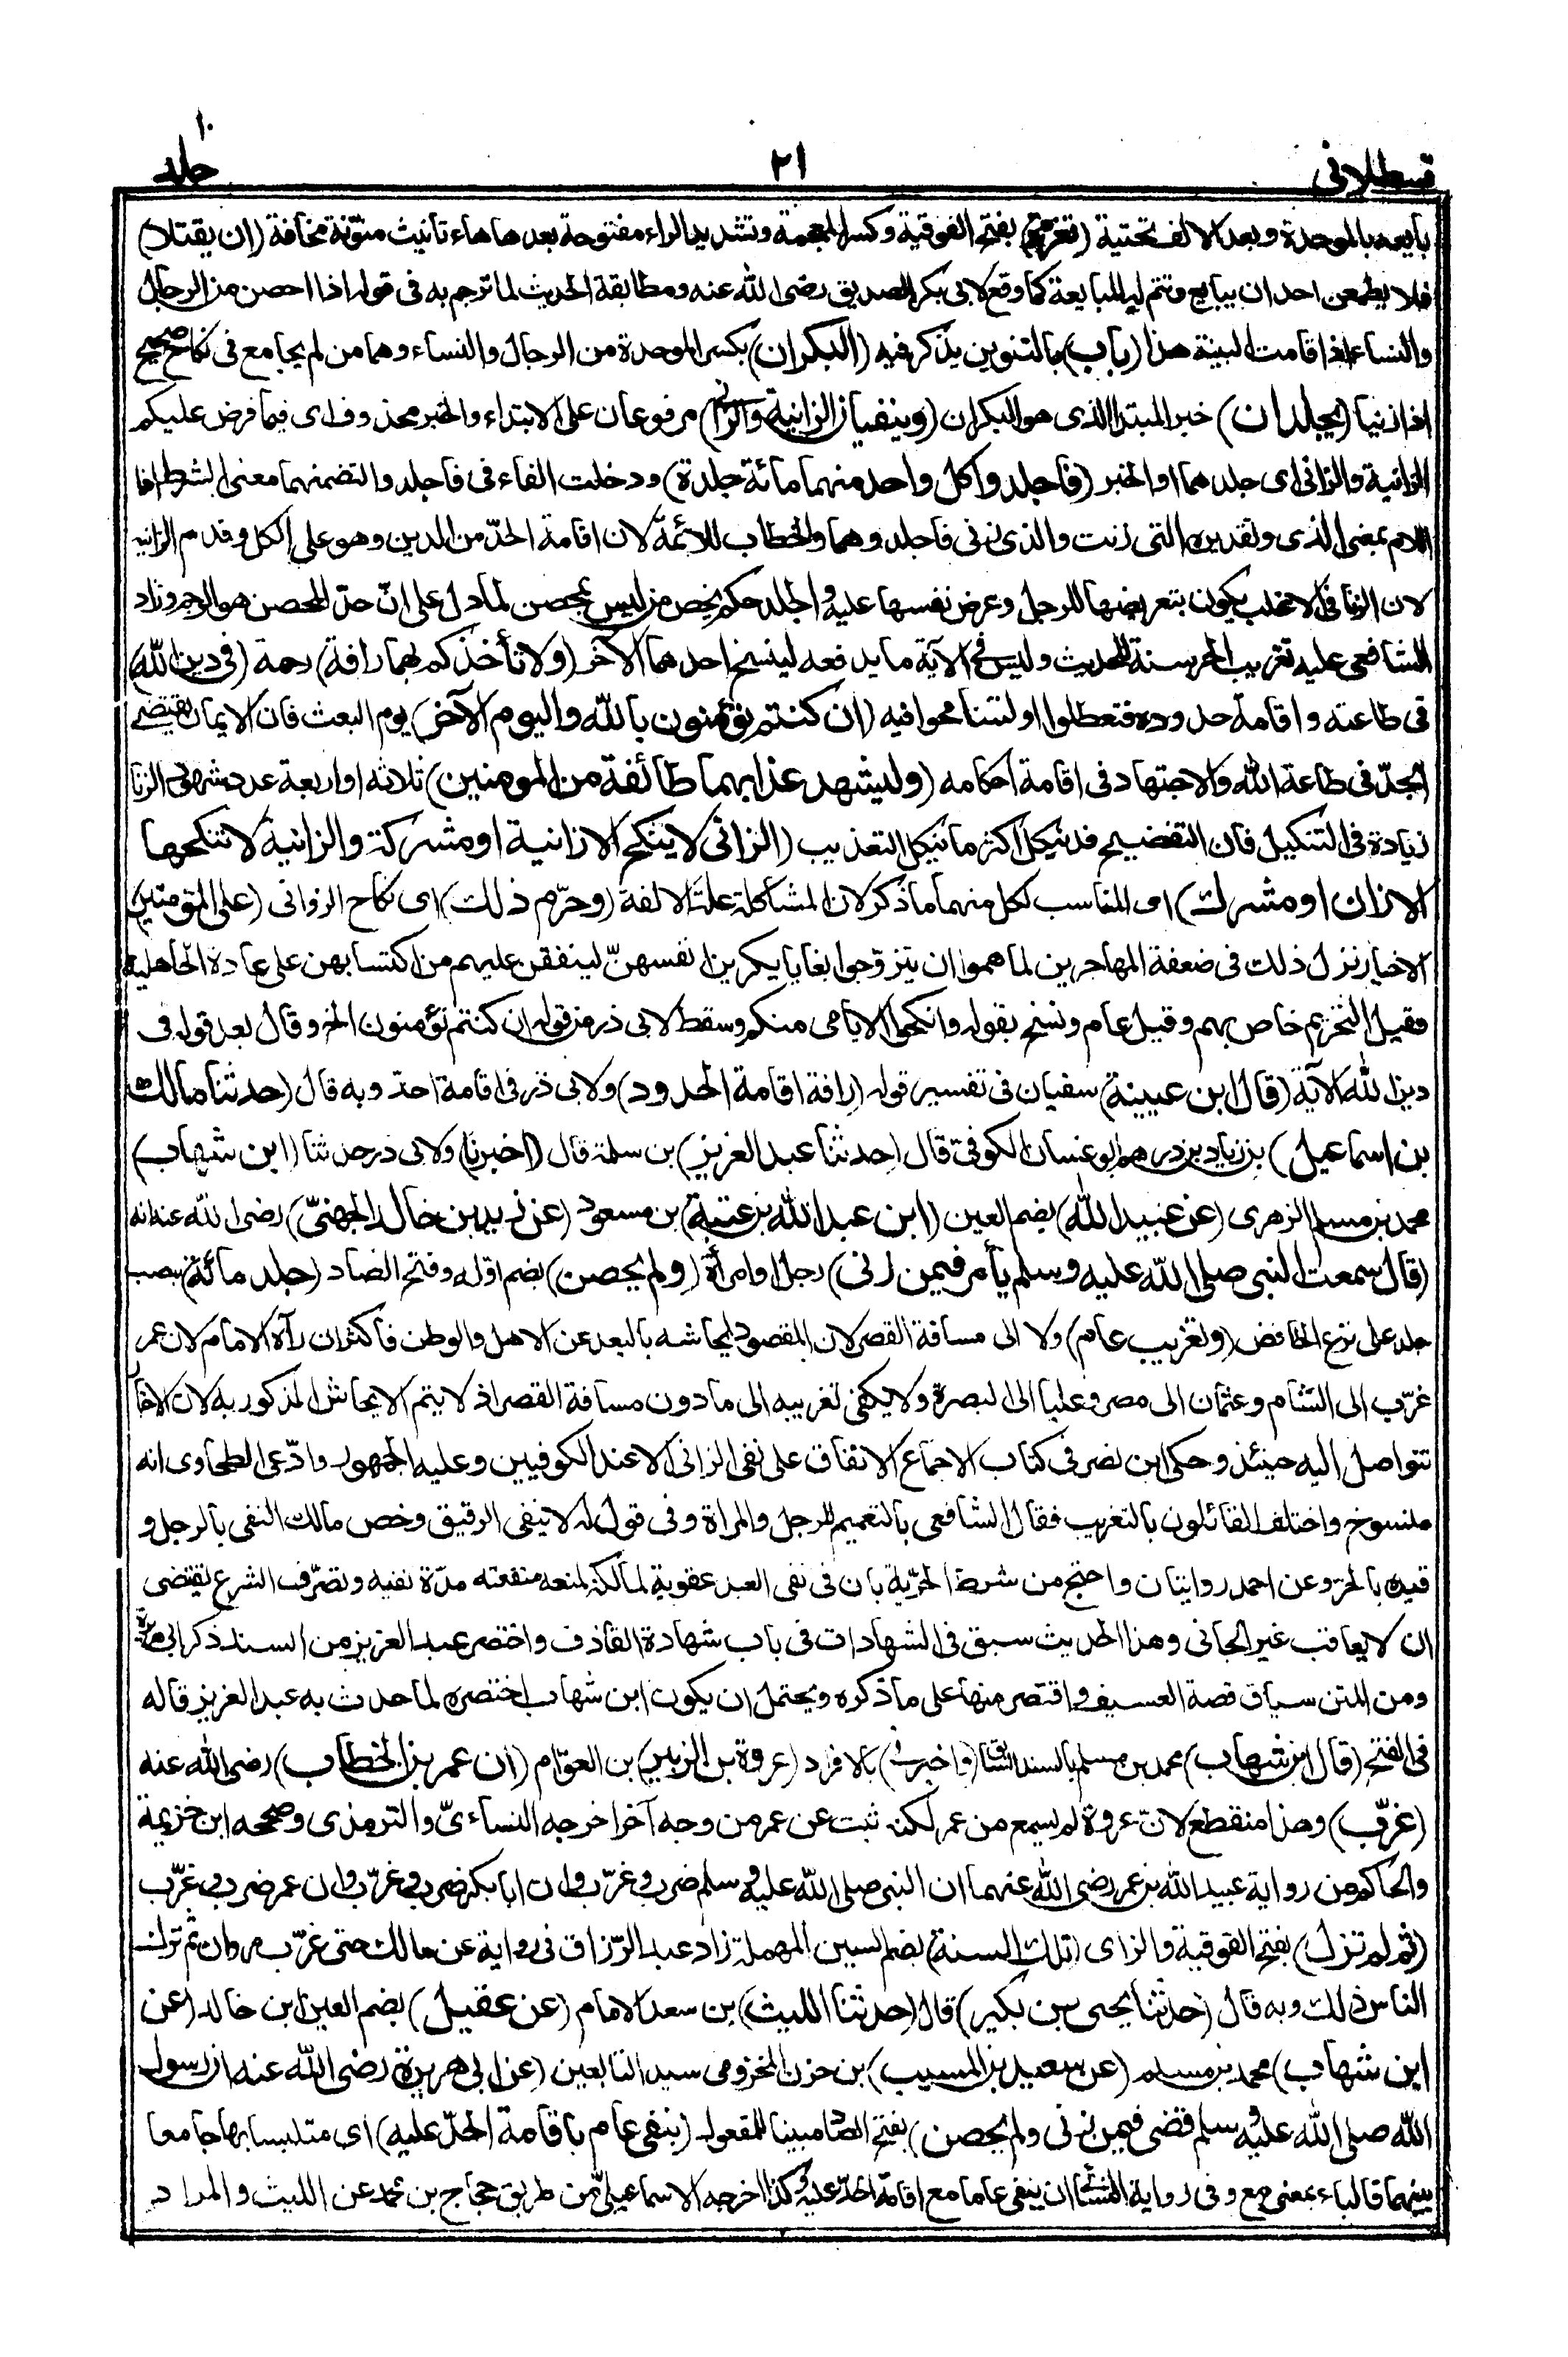 قسطلانى
٢١
جلد ١٠
بايعه بالموحدة وبعد الالف تحتية (تغرة) بفتح الفوقية وكسر المعجمة وتشديد الراء مفتوحة بعدها هاء تأنيث منونة مخافة (ان يقتلا)
فلا يطمعن احد ان يبايع وتتم له المبايعة كما وقع لابى بكر الصديق رضى الله عنه ومطابقة الحديث لما ترجم به فى قوله اذا احصن من الرجال
والنساء اذا قامت البينة هذا (باب) بالتنوين يذكر فيه (البكران) بكسر الموحدة من الرجال والنساء وهما من لم يجامع فى نكاح صحيح
اذا زنيا (يجلدان) خبر المبتدا الذى هو البكران (وينفيان الزانية والزانى) مرفوعان على الابتداء والخبر محذوف اى فيما فرض عليكم
الزانية والزانى اى جلدهما او الخبر (فاجلدوا كل واحد منهما مائة جلدة) ودخلت الفاء فى فاجلدوا لتضمنهما معنى الشرط اذا
اللام بمعنى الذى وتقديره التى زنت والذى زنى فاجلدوهما والخطاب للائمة لان اقامة الحدّ من الدين وهو على الكل وقدم الزانية
لان الزنا فى الاغلب يكون بتعريضها للرجل وعرض نفسها عليه والجلد حكم يخص من ليس بمحصن لما دل على انّ حدّ المحصن هو الرجم وزاد
الشافعى عليه تغريب الحر سنة للحديث وليس فى الآية ما يدفعه لينسخ احدهما الآخر (ولا تأخذكم بهما رافة) رحمة (فى دين الله)
فى طاعته واقامة حدوده فتعطلوا او لتسامحوا فيه (ان كنتم تؤمنون بالله واليوم الآخر) يوم البعث فان الايمان يقتضى
الجدّ فى طاعة الله والاجتهاد فى اقامة احكامه (وليشهد عذابهما طائفة من المومنين) ثلاثة او اربعة عدد شهود الزنا
زيادة فى التنكيل فان التفضيح قد ينكل اكثر ما ينكل التعذيب (الزانى لا ينكح الا زانية او مشركة والزانية لا تنكحها
الا زان او مشرك) اى المناسب لكل منهما ما ذكر لان المشاكلة علة الالفة (وحرّم ذلك) اى نكاح الزوانى (على المؤمنين)
الاخيار نزل ذلك فى ضعفة المهاجرين لما هموا ان يتزوّجوا بغايا يكرين انفسهنّ لينفقن عليهم من اكتسابهن على عادة الجاهلية
فقيل التحريم خاص بهم وقيل عام ونسخ بقوله وانكحوا الايامى منكم وسقط لابى ذر من قوله ان كنتم تؤمنون الخ وقال بعد قوله فى
دين الله الآية (قال ابن عيينة) سفيان فى تفسير قوله (رافة اقامة الحدود) ولابى ذر فى اقامة احد وبه قال (حدثنا مالك
بن اسماعيل) بن زياد بن درهم ابو غسان الكوفى قال (حدثنا عبد العزيز) بن سلمة قال (اخبرنا) ولابى ذر حدثنا (ابن شهاب)
محمد بن مسلم الزهرى (عن عبيد الله) بضم العين (ابن عبد الله بن عتبة) بن مسعود (عن زيد بن خالد الجهنىّ) رضى الله عنه انه
(قال سمعت النبى صلى الله عليه وسلم يأمر فيمن زنى) رجل او امرأة (ولم يحصن) بضم اوّله وفتح الصاد (جلد مائة) بنصب
جلد على نزع الخافض (وتغريب عام) ولا الى مسافة القصر لان المقصود ايحاشه بالبعد عن الاهل والوطن فأكثر ان رآه الامام لان عمر
غرّب الى الشام وعثمان الى مصر وعليا الى البصرة ولا يكفى تغريبه الى مادون مسافة القصر اذ لا يتم الايحاش المذكور به لان الاخبار
تتواصل اليه حينئذ وحكى ابن نصر فى كتاب الاجماع الاتفاق على نفى الزانى الا عند الكوفيين وعليه الجمهور وادّعى الطحاوى انه
منسوخ واختلف القائلون بالتغريب فقال الشافعى بالتعميم للرجل والمراة وفى قول له لا ينفى الرقيق وخص مالك النفى بالرجل و
قيده بالحر وعن احمد روايتان واحتج من شرط الحرّية بان فى نفى العبد عقوبة لمالكه لمنعه منفعته مدّة نفيه وتصرّف الشرع يقتضى
ان لا يعاقب غير الجانى وهذا الحديث سبق فى الشهادات فى باب شهادة القاذف واختصر عبد العزيز من السند ذكر ابى هريرة
ومن المتن سياق قصة العسيف واقتصر منها على ما ذكره ويحتمل ان يكون ابن شهاب اختصره لما حدث به عبد العزيز قاله
فى الفتح (قال ابن شهاب) محمد بن مسلم بالسند السابق (واخبرنى) بالافراد (عروة بن الزبير) بن العوّام (ان عمر بن الخطاب) رضى الله عنه
(غرّب) وهذا منقطع لانّ عروة لم يسمع من عمر لكنه ثبت عن عمر من وجه آخر اخرجه النساءىّ والترمذى وصححه ابن خزيمة
والحاكم من رواية عبيد الله بن عمر رضى الله عنهما ان النبى صلى الله عليه وسلم ضرب وغرّب وان ابا بكر ضرب وغرّب وان عمر ضرب وغرّب
(ثم لم تزل) بفتح الفوقية والزاى (تلك السنة) بضم السين المهملة زاد عبد الرّزاق فى رواية عن مالك حتى غرّب مروان ثم ترك
الناس ذلك وبه قال (حدثنا يحيى بن بكير) قال (حدثنا الليث) بن سعد الامام (عن عقيل) بضم العين ابن خالد (عن
ابن شهاب) محمد بن مسلم (عن سعيد بن المسيب) بن حزن المخزومى سيد التابعين (عن ابى هريرة رضى الله عنه ان رسول
الله صلى الله عليه وسلم قضى فيمن زنى ولم يحصن) بفتح الصاد مبينا للمفعول (بنفى عام باقامة الحدّ عليه) اى متلبسا بها جامعا
بينهما فالباء بمعنى مع وفى رواية النسائى ان ينفى عاما مع اقامة الحدّ عليه وكذا اخرجه الاسماعيلىّ من طريق حجاج بن محمد عن الليث والمراد